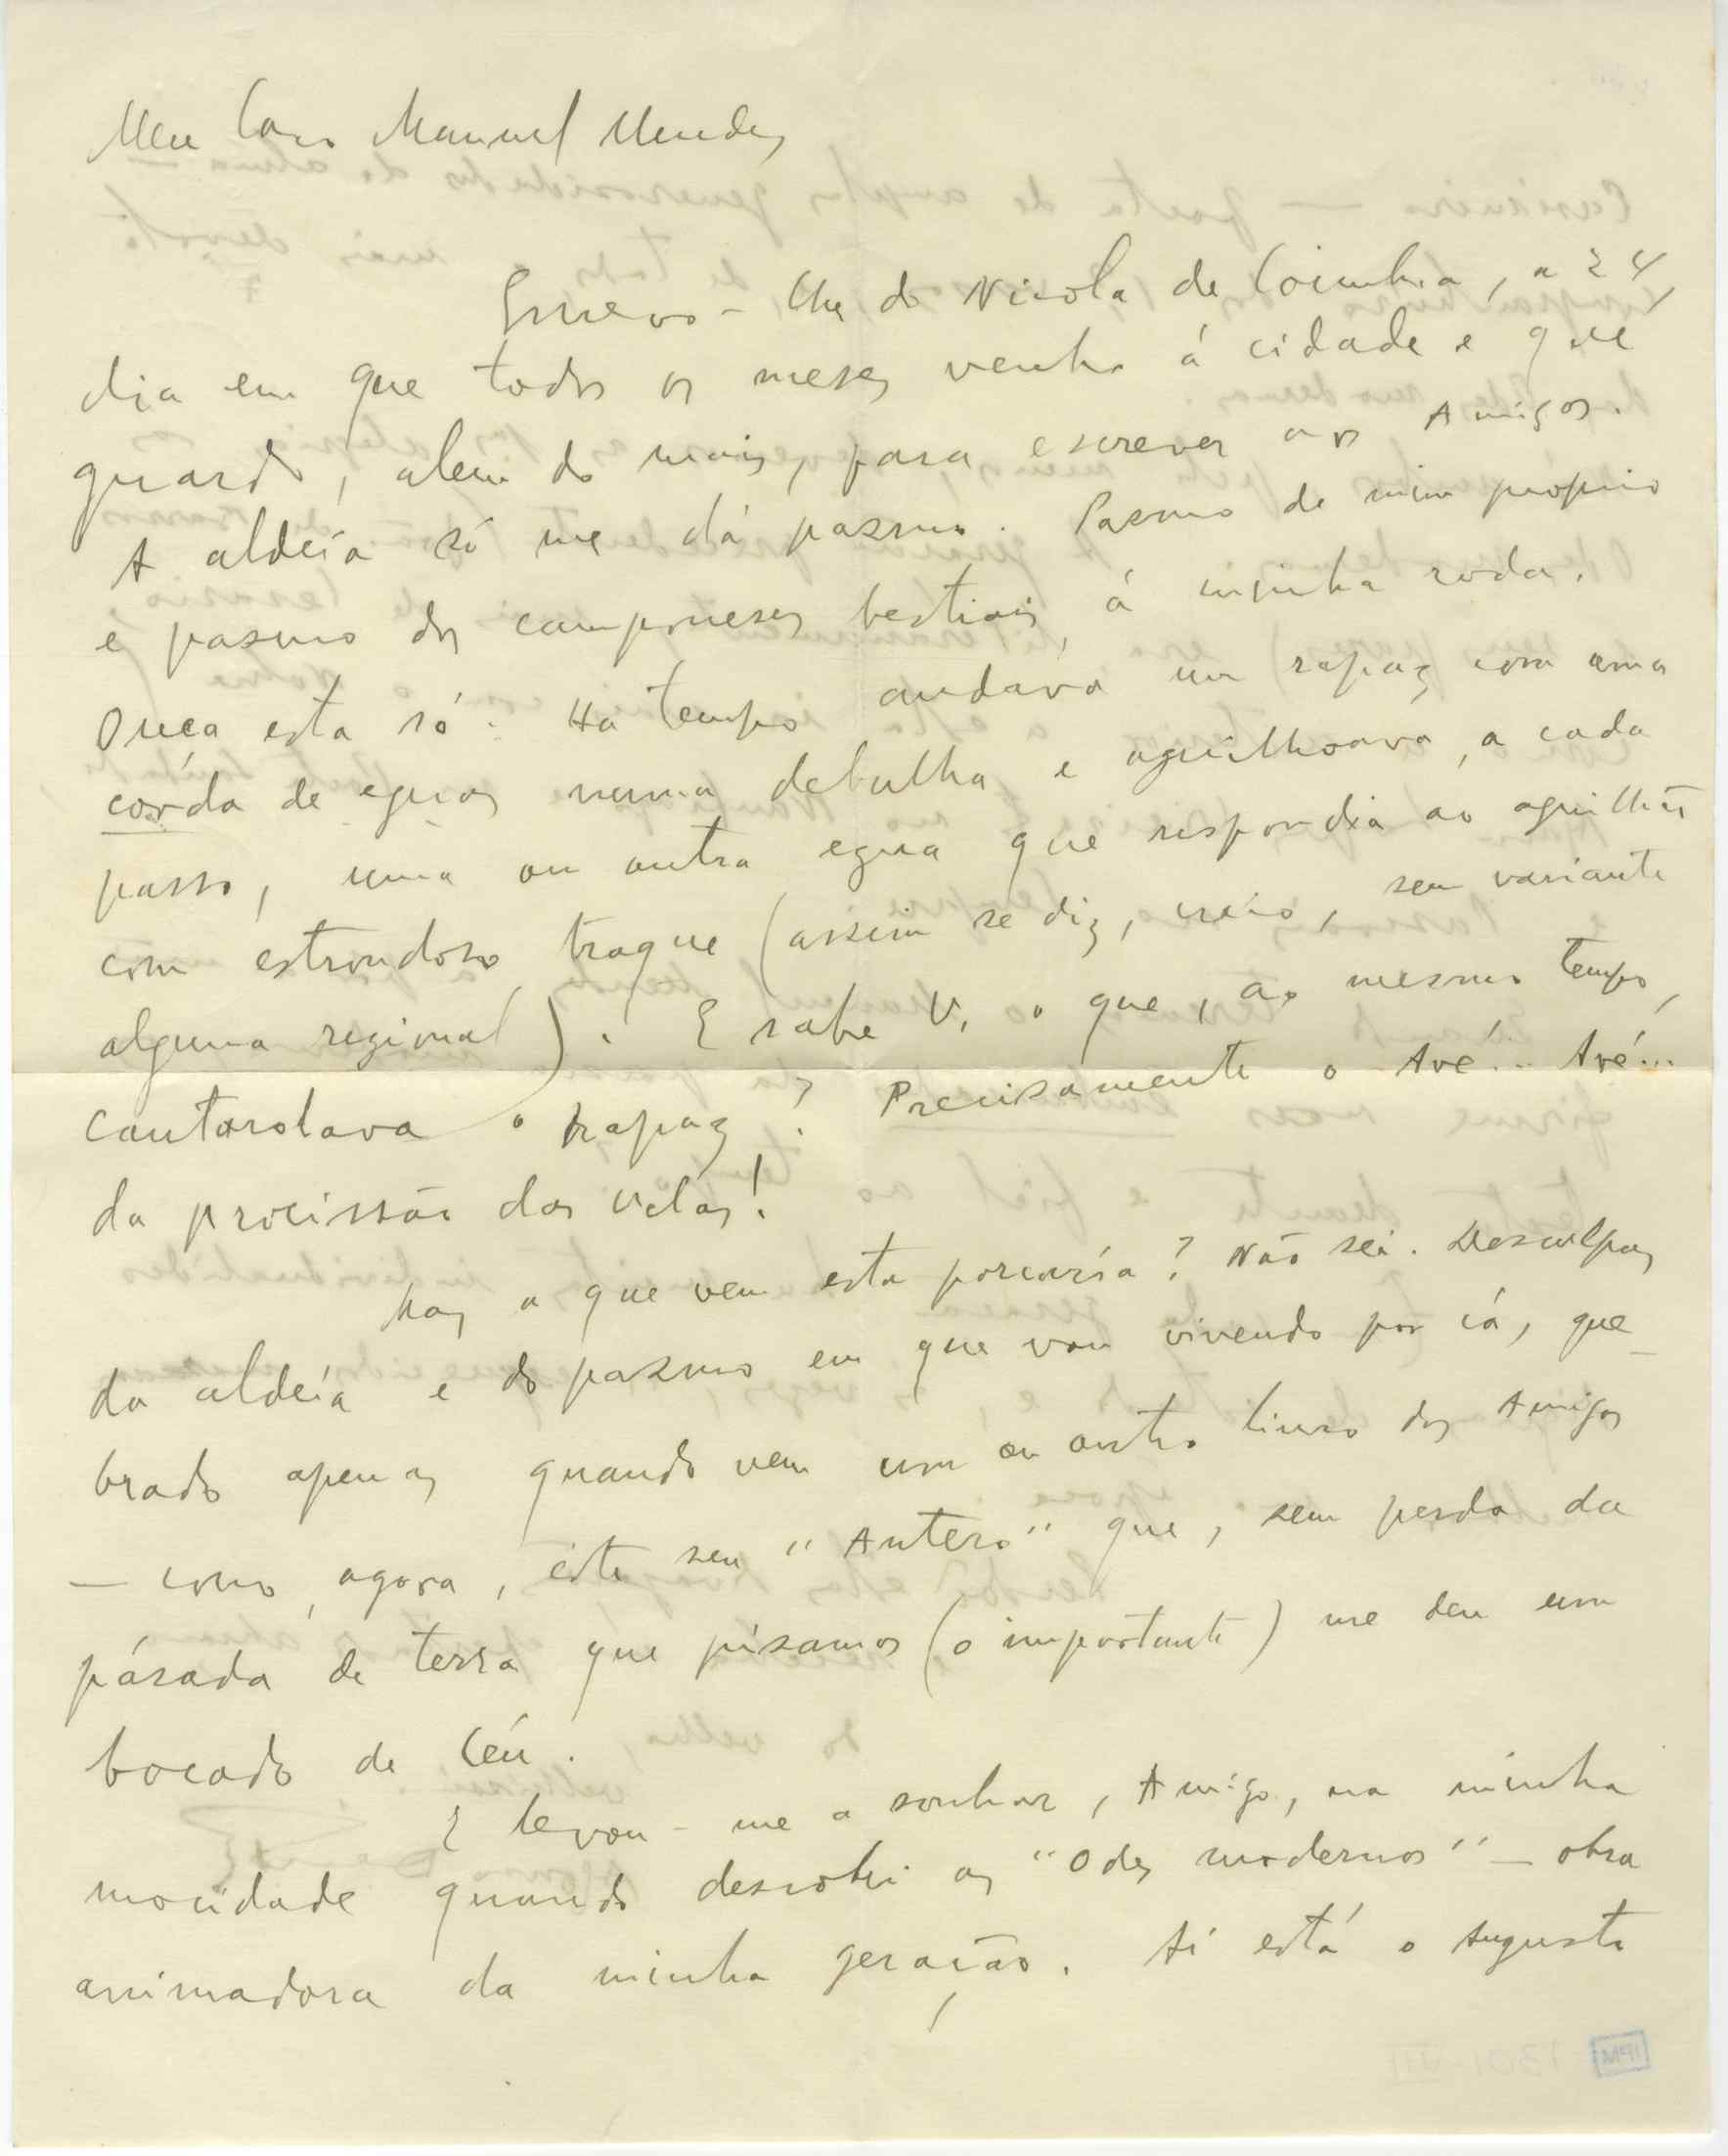 Meu Caro Manuel Mendes
Escrevo-lhe do Nicola de Coimbra, a 24,
dia em que todos os meses venho á cidade e que
guardo, alem do mais, para escrever aos Amigos.
A aldeia só me dá pasmo. Pasmo de mim proprio
e pasmo dos camponeses bestiais, á minha roda.
Ouça esta só: Ha tempo andava um rapaz com uma
córda de eguas numa debulha e aguilhoava, a cada
passo, uma ou outra egua que respondia ao aguilhão
com estrondoso traque (assim se diz, creio, sem variante
alguma regional). E sabe V. o que, ao mesmo tempo,
cantarolava o rapaz? Precisamente o Avé... Avé...
da procissão das velas!
Mas a que vem esta porcaría? Não sei. Desculpas
da aldeia e do pasmo em que vou vivendo por cá, que-
brado apenas quando vem um ou outro livro dos Amigos
— como, agora, êste seu "Antero" que, sem perda da
párada de terra que pisamos (o importante) me deu um
bocado de Céu.
E levou-me a sonhar, Amigo, na minha
mocidade quando descobri as "Odes modernas" — obra
animadora da minha geração. Aí está o Augusto